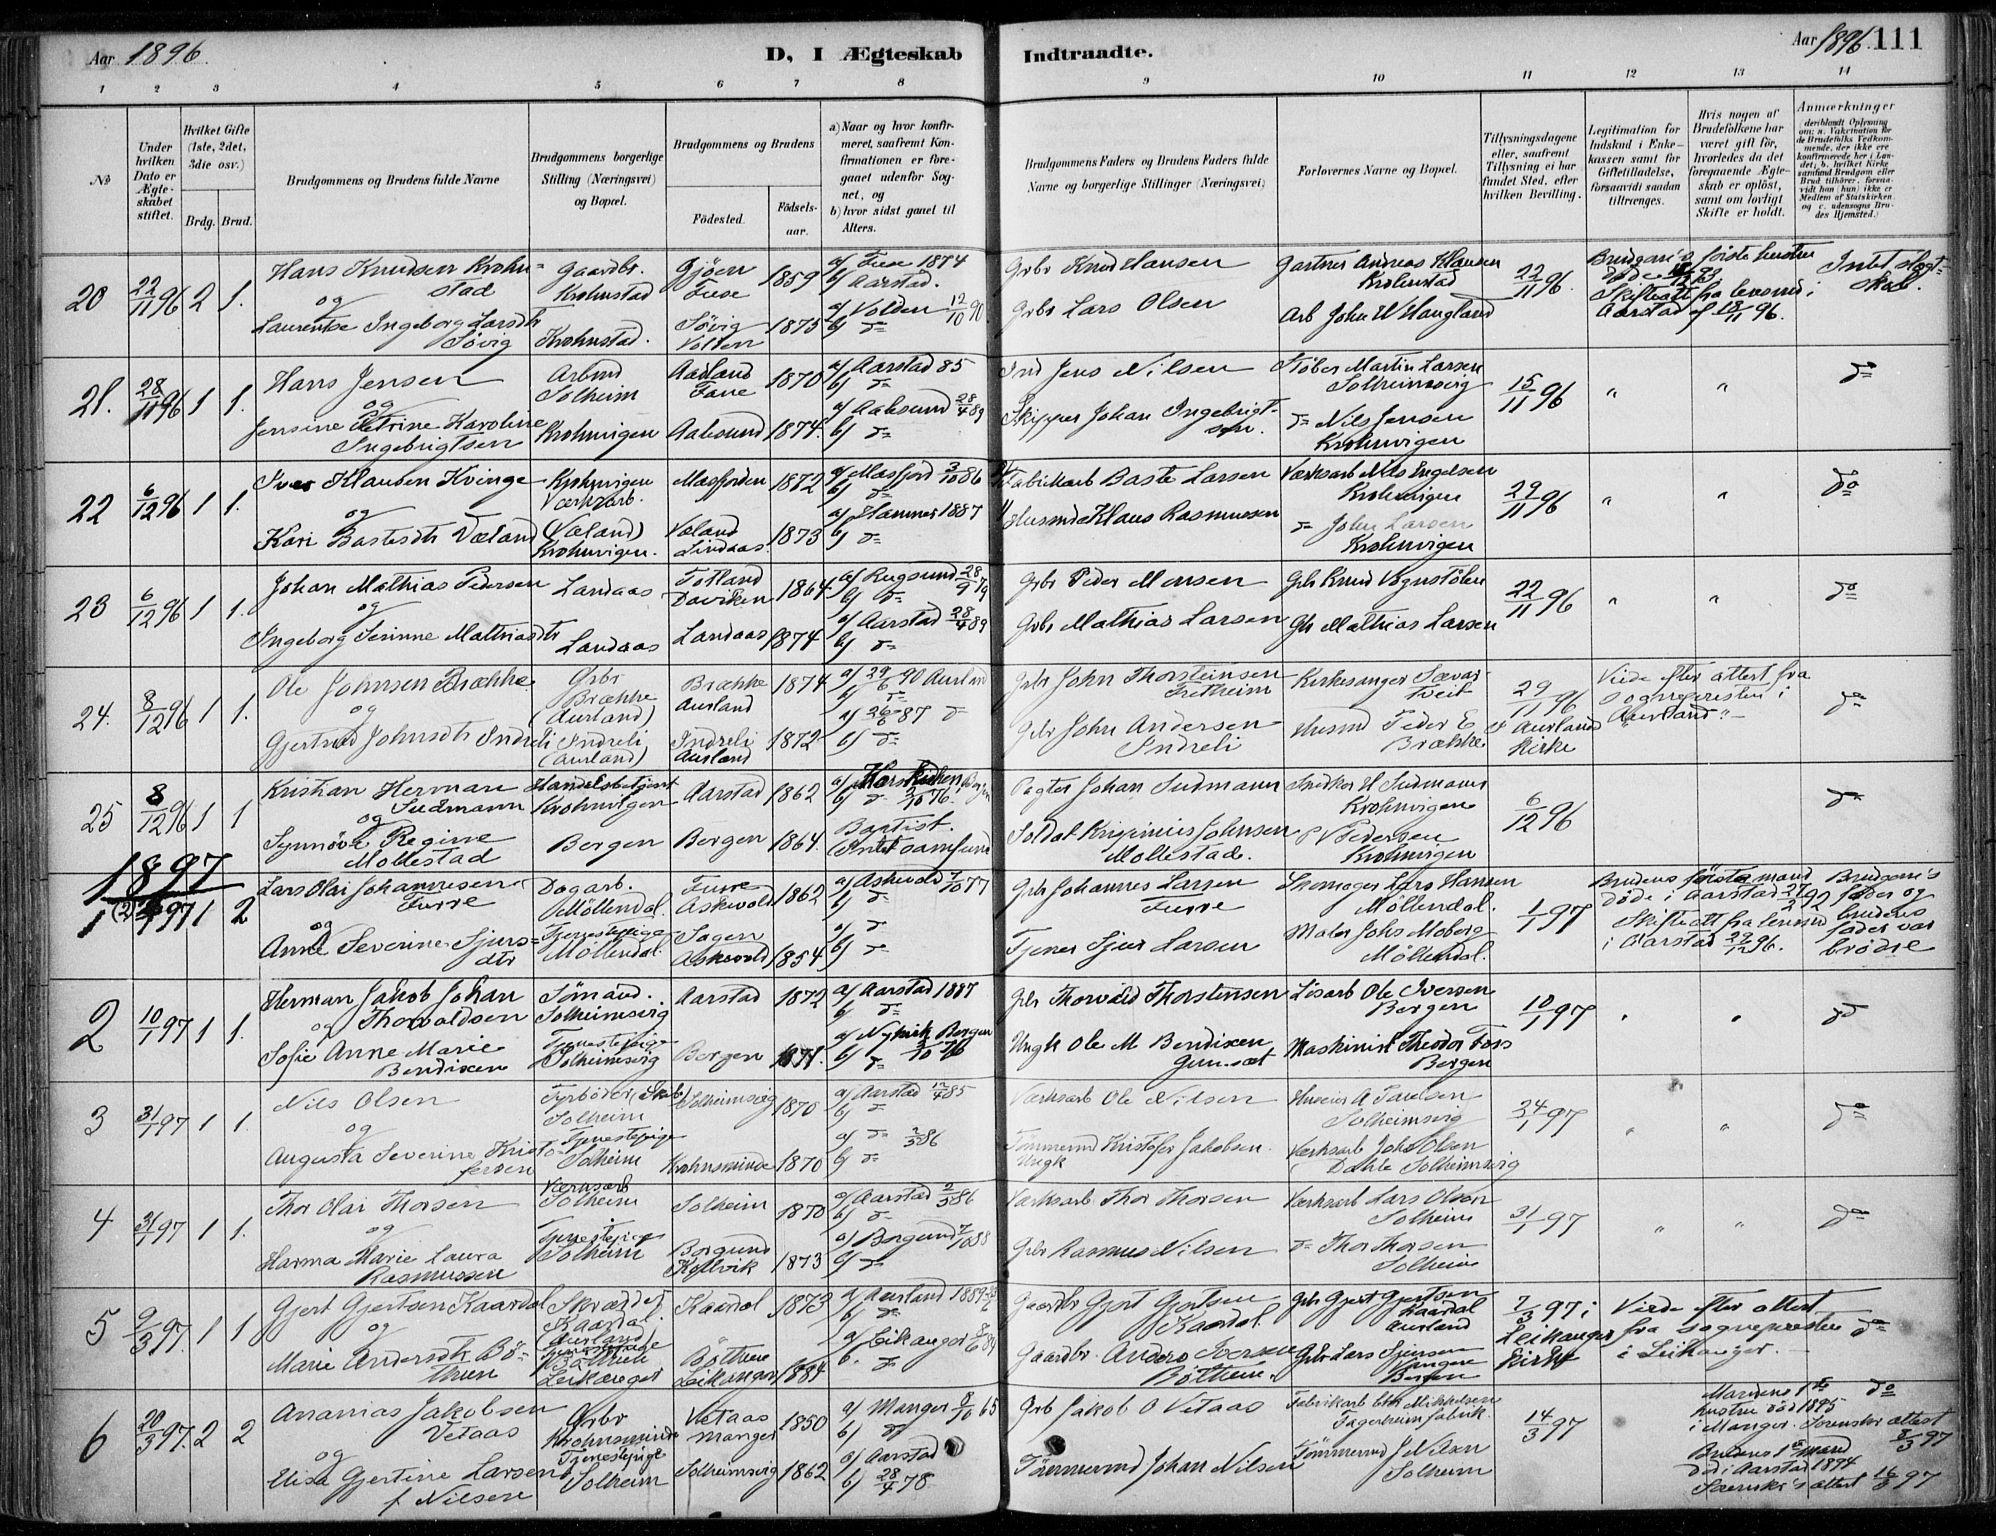 Aar 1896.
D, I Ægteskab Indtraadte.
Aar 1896. 111
1 2 3 4 5 6 7 8 9 10 11 12 13 14
No
Under hvilken Dato er Ægteskabet stiftet.
Hvilket Gifte (1ste, 2det, 3die osv.)
Brdg. Brud.
Brudgommens og Brudens fulde Navne
Brudgommens borgerlige Stilling (Næringsvei) og Bopæl.
Brudgommens og Brudens
Födested. Födselsaar.
a) Naar og hvor konfirmeret, saafremt Konfirmationen er foregaaet udenfor Sognet, og
b) hvor sidst gaaet til Alters.
Brudgommens Faders og Brudens Faders fulde Navne og borgerlige Stillinger (Næringsvei)
Forlovernes Navne og Bopæl.
Tillysningsdagene eller, saafremt Tillysning ei har fundet Sted, efter hvilken Bevilling.
Legitimation for Indskud i Enkekassen samt for Giftetilladelse, forsaavidt saadan tiltrænges.
Hvis nogen af Brudefolkene har været gift för, hvorledes da det foregaaende Ægteskab er oplöst, samt om lovligt Skifte er holdt.
Anmærkninger
20 22/11 96 2 1. Hans Knudsen Krohnstad Gaardbr. Krohnstad Gjöen Fuse 1859 a) Fuse 1874 b) Aarstad.
Grbr Knud Hansen Gartner Andreas Klausen Krohnstad 22/11 96. Brudgom's første hustru döde Skifteatt fra lensmd i Aarstad af 18/11 96. Intet slægtskab.
og
Laurentse Ingeborg Larsdtr Søvig Krohnstad. Søvig Volden 1875 a) Volden 12/10 90. b) do
Grbr Lars Olsen Arb John W Haugland
21. 28/11 96 1 1. Hans Jensen Arbmd Solheim Aadland Fane 1870 a) Aarstad 85 b) do
Ind Jens Nilsen Støber Martin Larsen Solheimsvig 15/11 96 " " do
og
Jensine Petrine Karoline Ingebrigtsen Krohnvigen Aalesund 1874. a) Aalesund 28/4 89 b) do
Skipper Johan Ingebrigtsen. do Nils Jensen Krohnvigen
22 6/12 96 1 1. Iver Klausen Kvinge Krohnvigen Værksarb. Masfjorden 1872 a) Masfjord 3/10 86 b) do
Fabrikarb Baste Larsen Værksarb Nils Engelsen Krohnvigen 29/11 96 " " do
og
Kari Bastesdtr Væland (Væland) Krohnvigen. Væland Lindaas 1873 a) Hammer 1887 b) do
Husmd Klaus Rasmussen do John Larsen Krohnvigen
23 6/12 96 1 1. Johan Mathias Pedersen Landaas Totland Daviken 1864 a) Rugsund 28/9 79 b) do
Grbr Peder Monsen Gbr Knud Vognstölen 22/11 96 " " do
og
Ingeborg Serinne Mathiasdtr Landaas Landaas 1874. a) Aarstad 28/4 89 b) do
Grbr Mathias Larsen Gbr Mathias Larsen
24. 8/12 96 1 1. Ole Johnsen Brække Grbr Brække (Aurland) Brække Aurland 1874 a) 29/6 90 Aurland b) do
Gbr John Thorsteinsen Fretheim Kirkesanger Sævar Tveit 29/11 96 i Aurland Kirke Viede efter attest fra sognepresten i Aurland. do
og
Gjertrud Johnsdtr Indreli Indreli (Aurland) Indreli Aurland 1872 a) 26/6 87 do b) do
Gbr John Andersen Indreli Husmd Peder E Brække
25 8/12 96 1 1 Kristian Herman Sudmann Handelsbetjent Krohnvigen Aarstad 1862 a) Korskirken, Bergen b) do 2/10 76.
Pagter Johan Sudmann Snedker H Sudmann Krohnvigen 6/12 96 do
og
Synnöve Regine Mollestad Bergen Bergen 1864. Baptist. (Intet samfund
Soldat Krispinius Johnsen Mollestad. P Pedersen Krohnvigen
1897
1 97 1 2 Lars Olai Johannesen Furre Dagarb. Möllendal. Furre Askevold 1862 a) Askevold 7/10 77 b) do
Gbr Johannes Larsen Furre Skomager Lars Hansen Möllendal. 1/1 97 Brudens første mand döde i Aarstad 27/2 92 Skifteatt fra lensmd i Aarstad 29/12 96. Brudgom's fader og brudens fader var brödre
og
Anne Severine Sjursdtr Tjenestepige Möllendal. Sagen Askevold 1854 a) do b) do
Tjener Sjur Larsen Maler Johs Moberg Möllendal.
2 10/1 97 1 1. Herman Jakob Johan Thorvaldsen Sömand. Solheimsvig Aarstad 1872 a) Aarstad 1887 b) do
Gbr Thorvald Thorstensen Lösarb Ole Iversen Bergen 10/1 97 " " do
og
Sofie Anne Marie Bendixen Tjenestepige Solheimsvig Bergen 1871. a) Nykirk Bergen b) do
Ungk Ole M Bendixen Maskinist Theodor Foss Bergen
3 31/1 97 1 1. Nils Olsen Fyrböder (Skib) Solheim Solheimsvig 1870 a) Aarstad 12/4 85 b) do
Værksarb Ole Nilsen Huseier A Paulsen Solheimsvig 24/1 97 " " do
og
Augusta Severine Kristofersen Tjenestepige Solheim Krohnsminde 1870 a) do 2/5 86 b) do
Tömmermd Kristofer Jakobsen. Ungk Værksarb Johs Olsen Dahle Solheimsvig
4 31/1 97 1 1. Thor Olai Thorsen Værksarb Solheim Solheim 1870 a) Aarstad 2/5 86 b) do
Værksarb Thor Thorsen Værksarb Lars Olsen Solheim 31/1 97 " " do
og
Harma Marie Laura Rasmussen Tjenestepige Solheim Borgund Kjelvik 1873 a) Borgund 7/10 88 b) do
Gbr Rasmus Nilsen do Thor Thorsen Solheim
5 9/3 97. 1 1 Gjert Gjertsen Kaardal Skrædder Kaardal. (Aurland) Kaardal 1873 a) Aurland 1889 b) do
Gaardbr Gjert Gjertsen Kaardal Gbr Gjert Gjertsen Kaardal Aurland 7/3 97 i Leikanger Kirke Viede efter attest fra sognepresten i Leikanger. do
og
Marie Andersdtr Böthun Tjenestepige Böthun Leikanger Böthun Leikanger 1884 a) Leikanger b. do
Gaardbr. Anders Iversen Böthun. Gbr Lars Sjursen Vangen Bergen
6 20/3 97. 2 2 Ananias Jakobsen Vetaas Grbr Krohnsminde Vetaas Manger 1850 a) Manger 8/10 65 b) do
Grb Jakob O Vetaas Fabrikarb Mikkelsen Fagerheim fabrik. 14/3 97 Mandens 1ste hustru död 1895 i Manger. Sorenskr attest 8/3 97 do
og
Elisa Gjertine Larsen f Nilsen Tjenestepige Solheim Solheimsvig 1862 a) Aarstad b) 28/4 78
Tömmermd Johan Nilsen Tömmermd J Nilsen Solheim Brudens 1ste mand död i Aarstad 1894 Sorenskr's attest 16/3 97